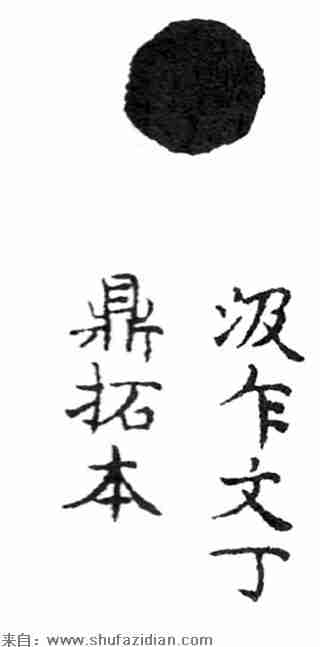 汲乍文丁
鼎拓本
来自：www.shufazidian.com